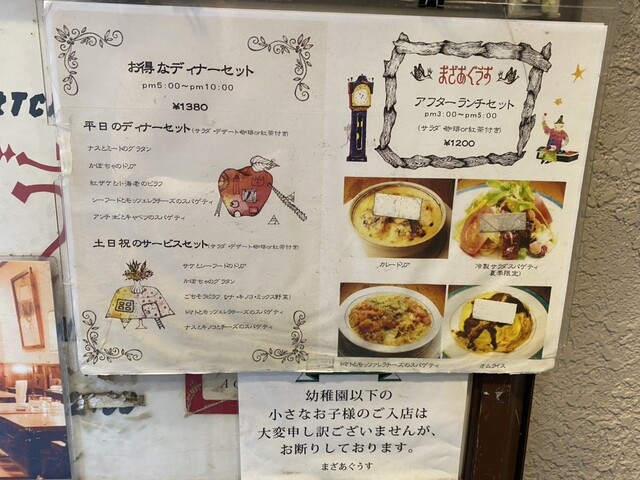 お得なディナーセット
pm5:00～pm10:00
¥1380
平日のディナーセット(サラダ・デザート・珈琲or紅茶付き)
ナスとミートのグラタン
かぼちゃのドリア
紅ザケと小海老のピラフ
シーフードとモッツァレラチーズのスパゲティ
アンチョビとキャベツのスパゲティ
土日祝のサービスセット(サラダ・デザート・珈琲or紅茶付き)
サケとシーフードのドリア
かぼちゃのグラタン
ごちそうピラフ(ナ・キノコ・ミックス野菜)
トマトとモッツァレラチーズのスパゲティ
ナスとキノコとチーズのスパゲティ
まざあぐうす
アフターランチセット
pm3:00～pm5:00
(サラダ・珈琲or紅茶付き)
¥1200
カレードリア
冷製サラダスパゲティ
(夏季限定)
トマトとモッツァレラチーズのスパゲティ
オムライス
幼稚園以下の
小さなお子様のご入店は
大変申し訳ございませんが、
お断りしております。
まざあぐうす